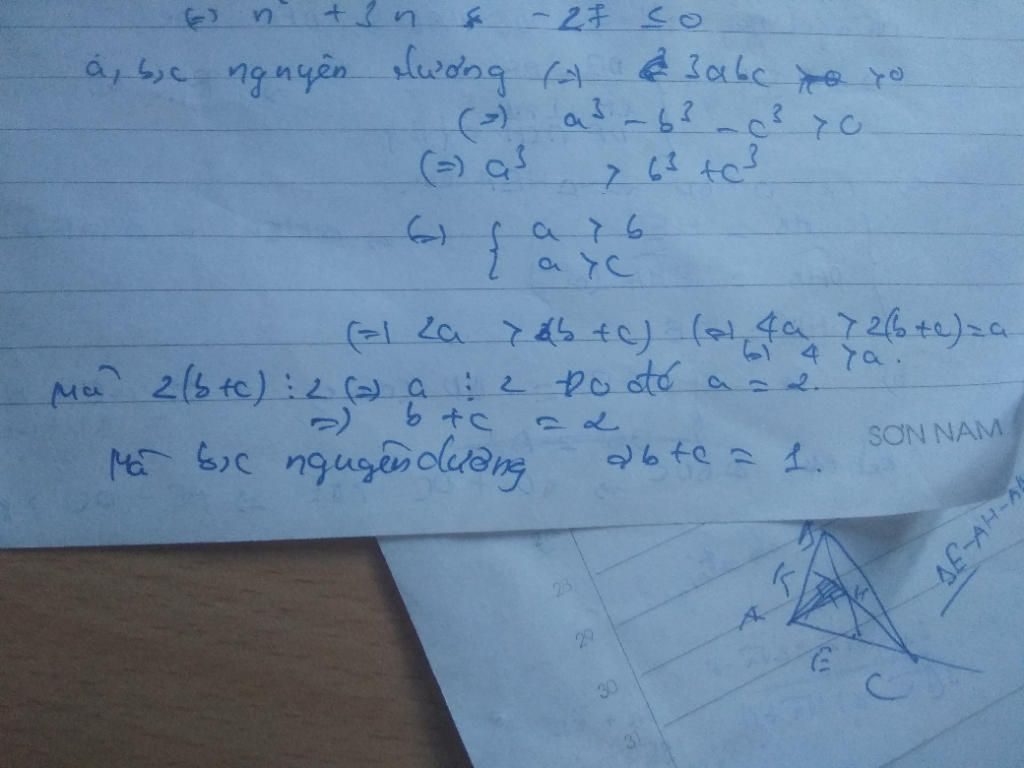 (=) n² + 3n - 27 ≤ 0
a, b, c nguyên dương (=) 3abc > 0
(=) a³ - b³ - c³ > 0
(=) a³ > b³ + c³
(=) { a > b
{ a > c
(=) 2a > (b + c) (=) 4a > 2(b+c) = a
(=) 4 > a.
Mà 2(b+c) ⋮ 2 (=) a ⋮ 2 Do đó a = 2.
=) b + c = 2
Mà b, c nguyên dương =) b + c = 1.
SƠN NAM
B
K
A
E
C
ΔE-AH-AB
28
29
30
31